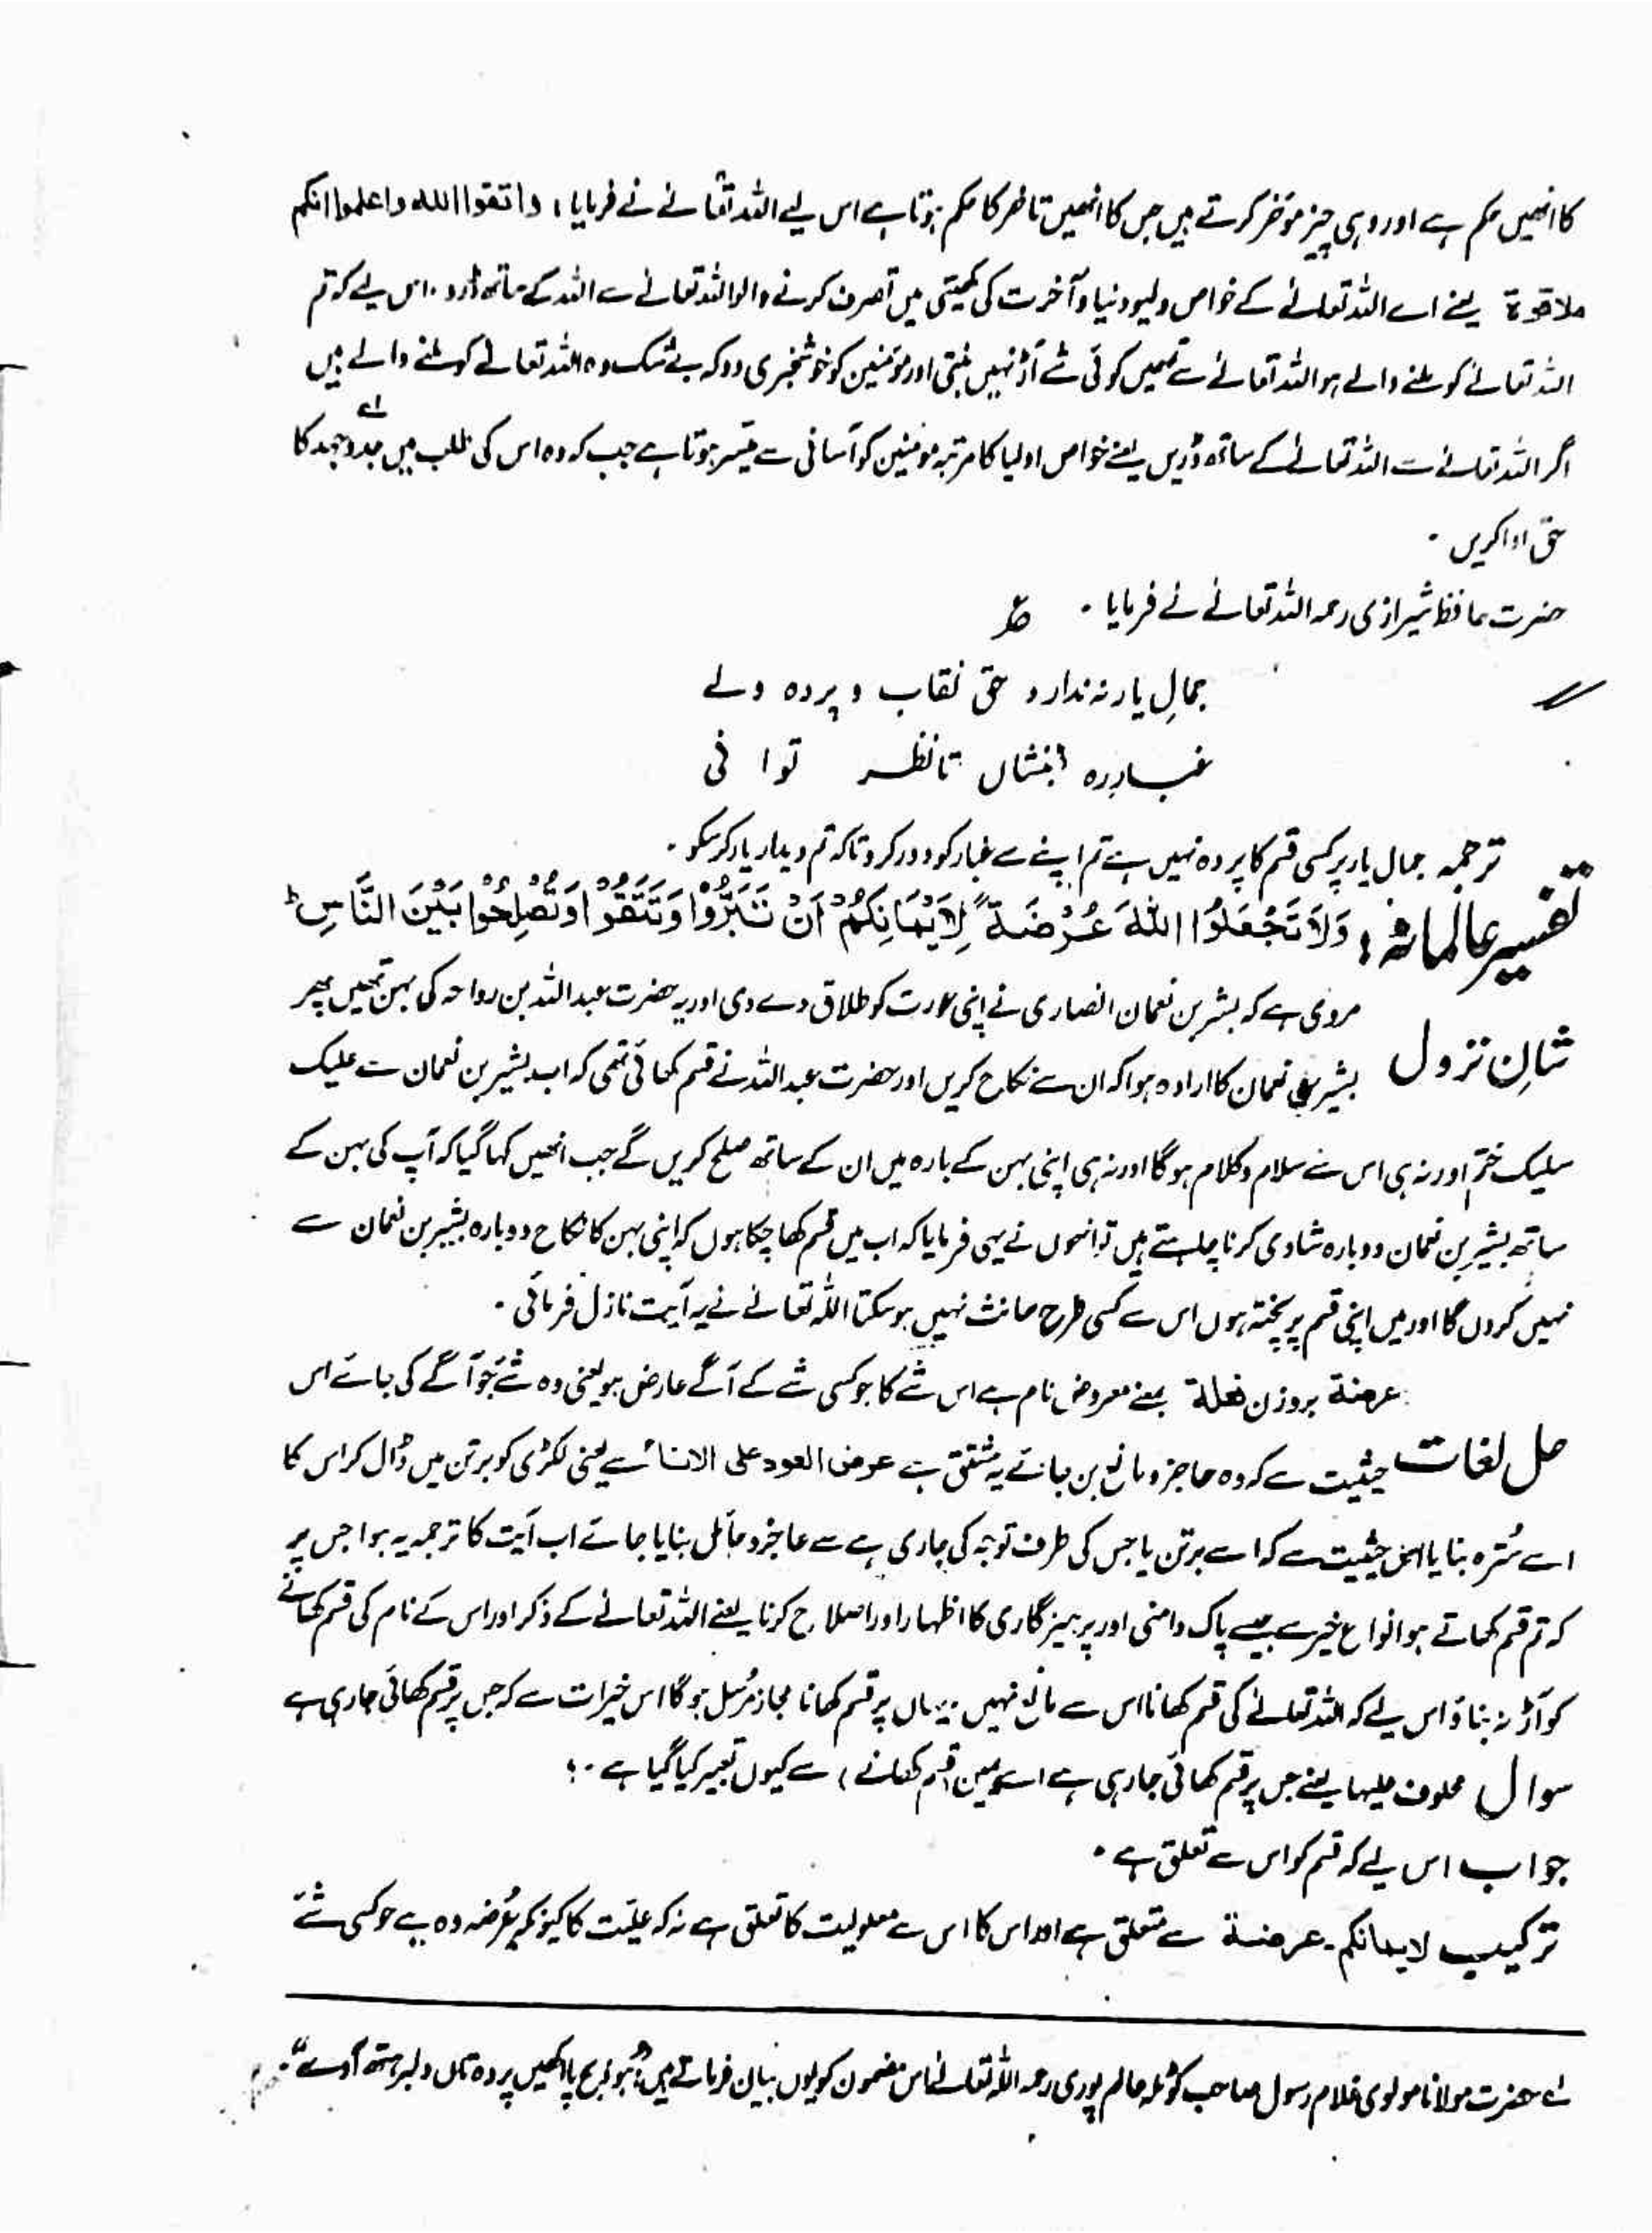 کا انھیں حکم ہے اور وہی چیز مؤخر کرتے ہیں جس کا انھیں تاخر کا حکم ہوتا ہے اس لیے اللہ تعالےٰ نے فرمایا؛ واتقوا اللہ واعلموا انکم
ملاقوۃ یعنے اے اللہ تعالےٰ کے خواص ولیو دنیا و آخرت کی کھیتی میں تصرف کرنے والو اللہ تعالےٰ سے اللہ کے ساتھ ڈرو۔ اس لیے کہ تم
اللہ تعالےٰ کو ملنے والے ہو اللہ تعالےٰ سے تمہیں کوئی شے آڑ نہیں بنتی اور مؤمنین کو خوشخبری دو کہ بے شک وہ اللہ تعالےٰ کو ملنے والے ہیں
اگر اللہ تعالےٰ سے اللہ تعالےٰ کے ساتھ ڈریں یعنے خواص اولیا کا مرتبہ مومنین کو آسانی سے میسر ہوتا ہے جب کہ وہ اس کی طلب میں جدوجہد کا
حق ادا کریں۔
حضرت حافظ شیرازی رحمہ اللہ تعالےٰ نے فرمایا۔
جمالِ یار نہ ندارد حق نقاب و پردہ ولے
غبار رہ بنشاں تا نظر توا نی
ترجمہ جمال یار پر کسی قسم کا پردہ نہیں ہے تم اپنے سے غبار کو دور کرو تاکہ تم دیدار یار کر سکو۔
تفسیر عالمانہ: وَلَا تَجْعَلُوا اللّٰهَ عُرْضَةً لِّاَيْمَانِكُمْ اَنْ تَبَرُّوْا وَتَتَّقُوْا وَتُصْلِحُوْا بَيْنَ النَّاسِ ط
شانِ نزول مروی ہے کہ بشیر بن نعمان انصاری نے اپنی عورت کو طلاق دے دی اور یہ حضرت عبداللہ بن رواحہ کی بہن تھیں پھر
بشیر بن نعمان کا ارادہ ہوا کہ ان سے نکاح کریں اور حضرت عبداللہ نے قسم کھائی تھی کہ اب بشیر بن نعمان سے علیک
سلیک ختم اور نہ ہی اس سے سلام و کلام ہوگا اور نہ ہی اپنی بہن کے بارہ میں ان کے ساتھ صلح کریں گے جب انھیں کہا گیا کہ آپ کی بہن کے
ساتھ بشیر بن نعمان دوبارہ شادی کرنا چاہتے ہیں تو انہوں نے یہی فرمایا کہ اب میں قسم کھا چکا ہوں کہ اپنی بہن کا نکاح دوبارہ بشیر بن نعمان سے
نہیں کروں گا اور میں اپنی قسم پر پختہ ہوں اس سے کسی طرح حانث نہیں ہو سکتا اللہ تعالےٰ نے یہ آیت نازل فرمائی۔
عرضۃ بروزن فعلۃ بمعنے معروض نام ہے اس شے کا جو کسی شے کے آگے عارض ہو یعنی وہ شے جو آگے کی جائے اس
حل لغات حیثیت سے کہ وہ حاجز و مانع بن جائے یہ مشتق ہے عرض العود علی الاناء سے یعنی لکڑی کو برتن میں ڈال کر اس کا
اسے سُترہ بنایا اس حیثیت سے کہ اسے برتن یا جس کی طرف توجہ کی جاری ہے سے حاجز و حائل بنایا جائے اب آیت کا ترجمہ یہ ہوا جس پر
کہ تم قسم کھاتے ہو انواع خیر سے جیسے پاک دامنی اور پرہیزگاری کا اظہار اور اصلاح کرنا یعنے اللہ تعالےٰ کے ذکر اور اس کے نام کی قسم کھانے
کو آڑ نہ بناؤ اس لیے کہ اللہ تعالےٰ کی قسم کھانا اس سے مانع نہیں یہاں پر قسم کھانا مجاز مُرسل ہوگا اس خیرات سے کہ جس پر قسم کھائی جارہی ہے
سوال محلوف علیہا یعنے جس پر قسم کھائی جارہی ہے اسے یمین (قسم کھانے) سے کیوں تعبیر کیا گیا ہے۔؟
جواب اس لیے کہ قسم کو اس سے تعلق ہے۔
ترکیب لایمانکم۔ عرضۃ سے متعلق ہے اور اس کا اس سے معلولیت کا تعلق ہے نہ کہ علیّت کا کیونکہ عُرضہ وہ ہے جو کسی شے
لے حضرت مولانا مولوی غلام رسول صاحب کوٹلہ عالم پوری رحمہ اللہ تعالےٰ اس مضمون کو یوں بیان فرماتے ہیں؛